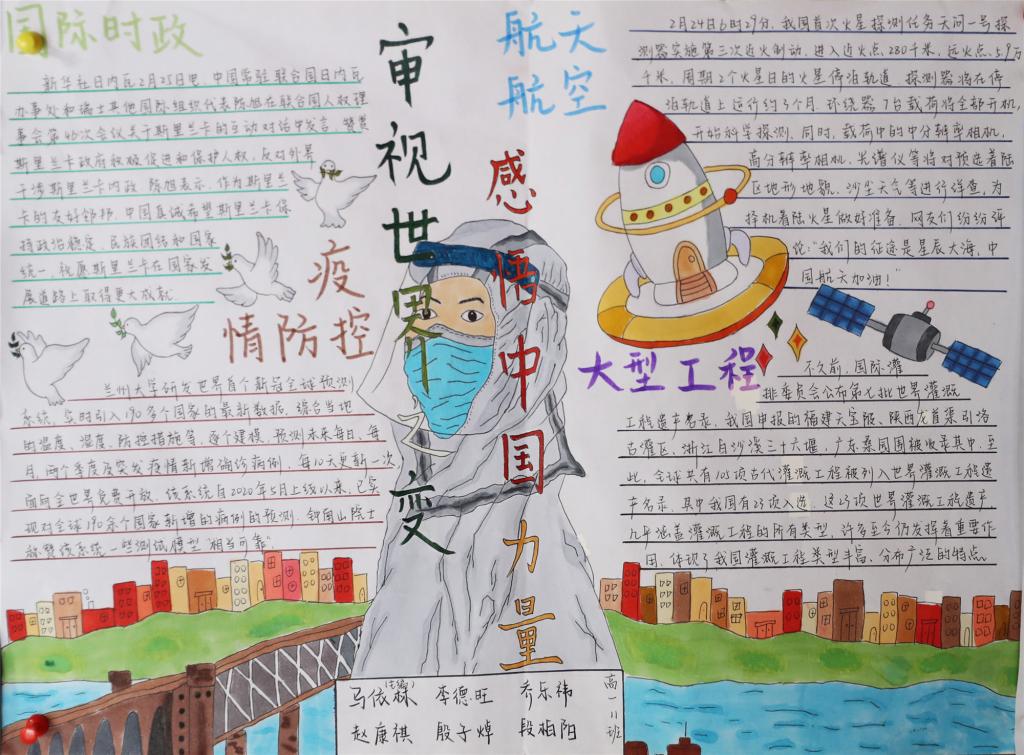 国际时政
新华社日内瓦2月25日电，中国常驻联合国日内瓦
办事处和瑞士其他国际组织代表陈旭在联合国人权理
事会第46次会议关于斯里兰卡的互动对话中发言，赞赏
斯里兰卡政府积极促进和保护人权，反对外界
干涉斯里兰卡内政。陈旭表示，作为斯里兰
卡的友好邻邦，中国真诚希望斯里兰卡保
持政治稳定、民族团结和国家
统一，祝愿斯里兰卡在国家发
展道路上取得更大成就。
疫
情防控
兰州大学研发世界首个新冠全球预测
系统，实时引入190多个国家的最新数据，综合当地
的温度、湿度、防控措施等，逐个建模，预测未来每日、每
月、两个季度及突发疫情新增确诊病例，每10天更新一次，
面向全世界免费开放。该系统自2020年5月上线以来，已实
现对全球190余个国家新增的病例的预测，钟南山院士
称赞该系统一些测试模型“相当可靠”
审视世界之变
感悟中国力量
航天
航空
2月24日6时29分，我国首次火星探测任务天问一号探
测器实施第三次近火制动，进入近火点280千米，远火点5.9万
千米，周期2个火星日的火星停泊轨道，探测器将在停
泊轨道上运行约3个月，环绕器7台载荷将全部开机，
开始科学探测。同时，载荷中的中分辨率相机、
高分辨率相机、光谱仪等将对预选着陆
区地形地貌、沙尘天气等进行详查，为
择机着陆火星做好准备。网友们纷纷评
论：“我们的征途是星辰大海，中
国航天加油！”
大型工程
不久前，国际灌
排委员会公布第七批世界灌溉
工程遗产名录，我国申报的福建天宝陂、陕西龙首渠引洛
古灌区、浙江白沙溪三十六堰、广东桑园围被收录其中，至
此，全球共有105项古代灌溉工程被列入世界灌溉工程遗
产名录，其中我国有23项入选。这23项世界灌溉工程遗产
几乎涵盖灌溉工程的所有类型，许多至今仍发挥着重要作
用，体现了我国灌溉工程类型丰富、分布广泛的特点。
马依霖(主编) 李德旺 乔乐祎
赵康祺 殷子焯 段柏阳
高一11班